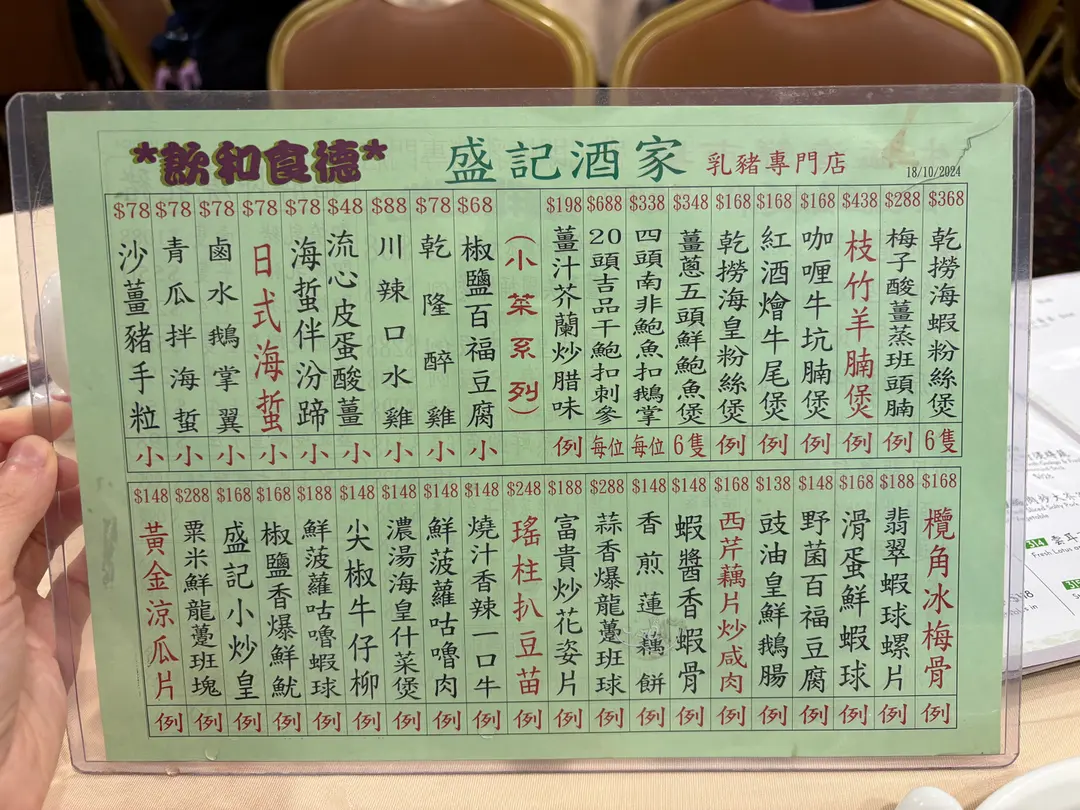 *飲和食德* 盛記酒家 乳豬專門店 18/10/2024
$368 乾撈海蝦粉絲煲 6隻
$288 梅子酸薑蒸班頭腩 例
$438 枝竹羊腩煲 例
$168 咖喱牛坑腩煲 例
$168 紅酒燴牛尾煲 例
$168 乾撈海皇粉絲煲 例
$348 薑蔥五頭鮮鮑魚煲 6隻
$338 四頭南非鮑魚扣鵝掌 每位
$688 20頭吉品干鮑扣刺參 每位
$198 薑汁芥蘭炒腊味 例
(小菜系列)
$68 椒鹽百福豆腐 小
$78 乾隆醉雞 小
$88 川辣口水雞 小
$48 流心皮蛋酸薑 小
$78 海蜇伴汾蹄 小
$78 日式海蜇 小
$78 鹵水鵝掌翼 小
$78 青瓜拌海蜇 小
$78 沙薑豬手粒 小
$168 欖角冰梅骨 例
$188 翡翠蝦球螺片 例
$168 滑蛋鮮蝦球 例
$148 野菌百福豆腐 例
$138 豉油皇鮮鵝腸 例
$168 西芹藕片炒咸肉 例
$148 蝦醬香蝦骨 例
$148 香煎蓮藕餅 例
$288 蒜香爆龍躉班球 例
$188 富貴炒花姿片 例
$248 瑤柱扒豆苗 例
$148 燒汁香辣一口牛 例
$148 鮮菠蘿咕嚕肉 例
$148 濃湯海皇什菜煲 例
$148 尖椒牛仔柳 例
$188 鮮菠蘿咕嚕蝦球 例
$168 椒鹽香爆鮮魷 例
$168 盛記小炒皇 例
$288 粟米鮮龍躉班塊 例
$148 黃金涼瓜片 例
雲耳
Fresh Lotus